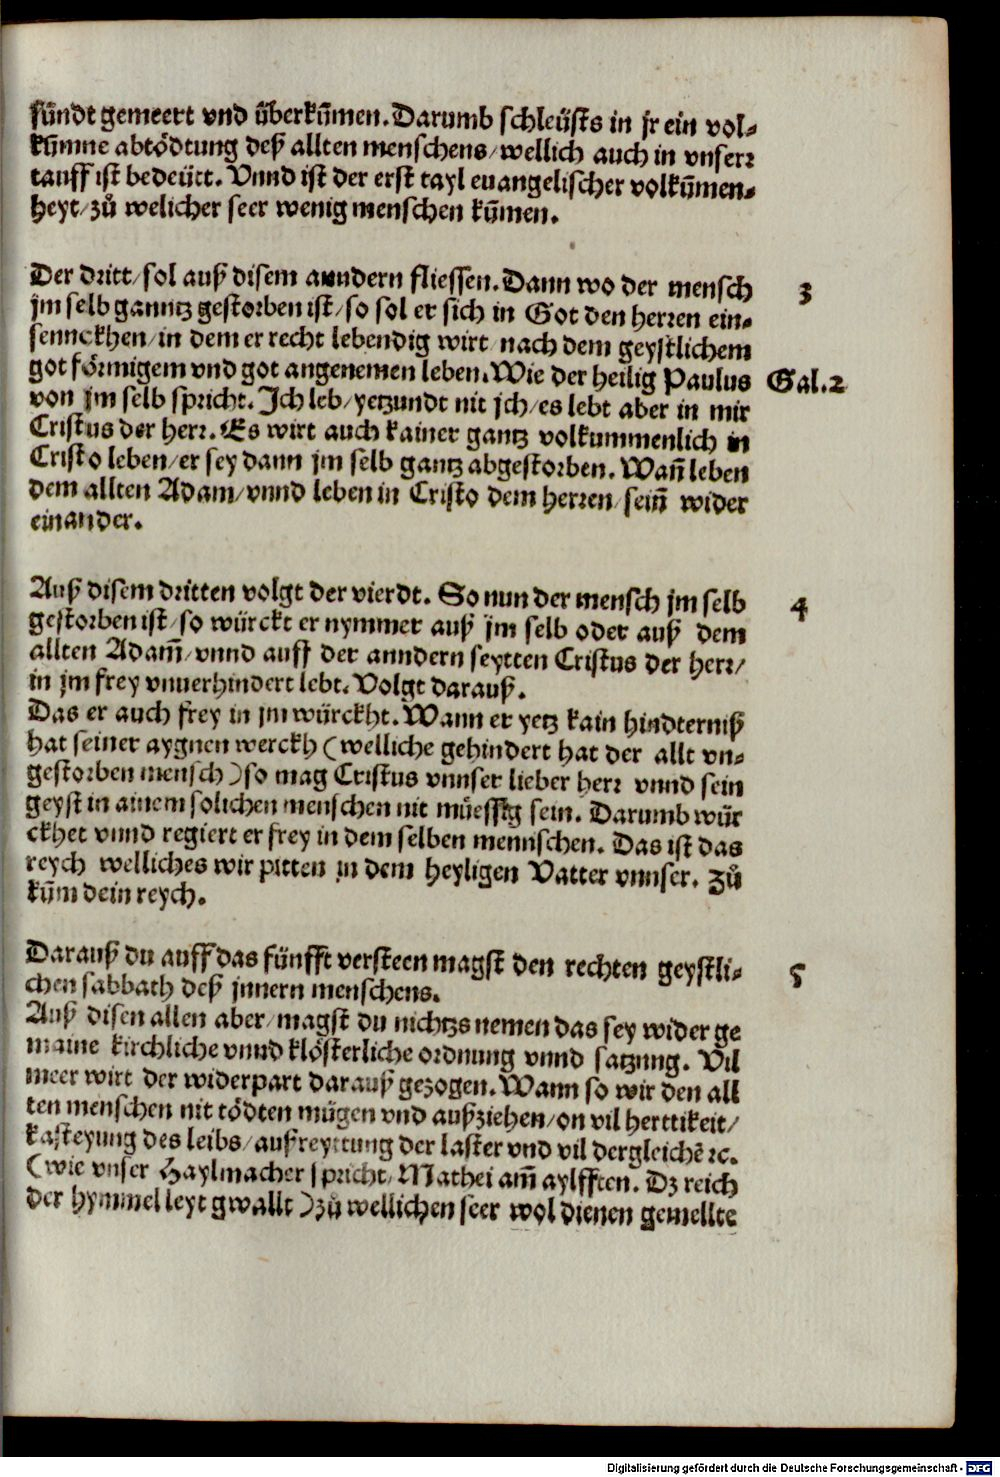 sündt gemeert vnd überkūmen. Darumb schleüsts in jr ein vol-
kūmne abtödtung deß allten menschens/ wellich auch in vnserr
tauff ist bedeüтt. Vnnd ist der erst tayl euangelischer volkūmen-
heyt/ zů welicher seer wenig menschen kūmen.
Der dritt/ sol auß disem anndern fliessen. Dann wo der mensch
3
jm selb ganntz gestorben ist/ so sol er sich in Got den herren ein-
sennckhen/ in dem er recht lebendig wirt/ nach dem geystlichem
got förmigem vnd got angenemen leben. Wie der heilig Paulus
Gal. 2
von jm selb spricht. Ich leb/ yetzundt nit jch/ es lebt aber in mir
Cristus der herr. Es wirt auch kainer gantz volkummenlich in
Cristo leben/ er sey dann jm selb gantz abgestorben. Wañ leben
dem allten Adam/ vnnd leben in Cristo dem herren/ sein̄ wider
einander.
Auß disem dritten volgt der vierdt. So nun der mensch jm selb
4
gestorben ist/ so würckt er nymmer auß jm selb oder auß dem
allten Adam̄/ vnnd auff der anndern seytten Cristus der herr/
in jm frey vnuerhindert lebt. Volgt darauß.
Das er auch frey in jm würckht. Wann er yetz kain hindterniß
hat seiner aygnen werckh (welliche gehindert hat der allt vn-
gestorben mensch) so mag Cristus vnnser lieber herr vnnd sein
geyst in ainem solichen menschen nit müessig sein. Darumb wür
ckhet vnnd regiert er frey in dem selben mennschen. Das ist das
reych welliches wir pitten in dem heyligen Vatter vnnser. Zů
kūm dein reych.
Darauß du auff das fünfft versteen magst den rechten geystli-
5
chen sabbath deß jnnern menschens.
Auß disen allen aber/ magst du nichtzs nemen das sey wider ge
maine kirchliche vnnd klösterliche ordnung vnnd satzung. Vil
meer wirt der widerpart darauß gezogen. Wann so wir den all
ten menschen nit tödten mügen vnd außziehen/ on vil herttikeit/
kasteyung des leibs/ außreyttung der laster vnd vil dergleichē ꝛc.
(wie vnser Haylmacher spricht/ Mathei am̄ aylfften. Dz reich
der hymmel leyt gwallt) zů wellichen seer wol dienen gemellte
Digitalisierung gefördert durch die Deutsche Forschungsgemeinschaft - DFG